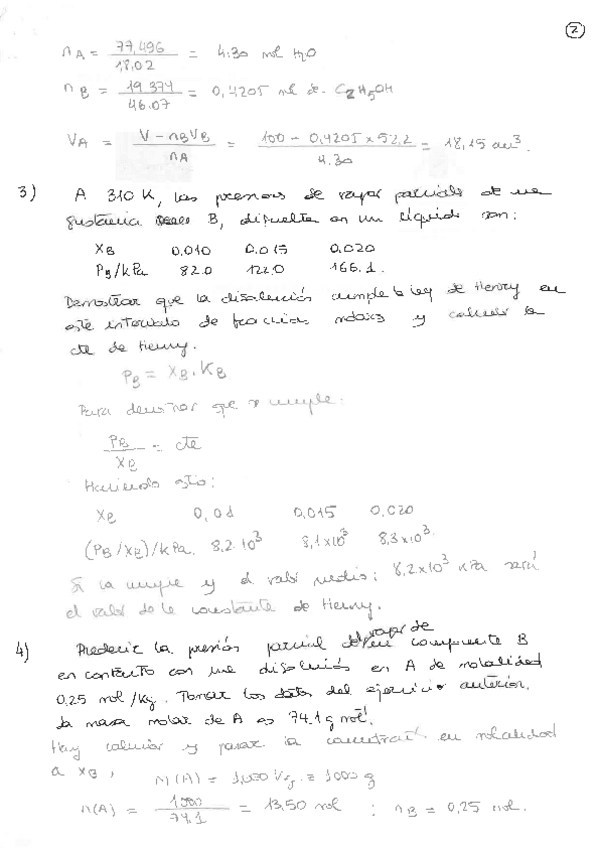 2
n_A = 77,496 / 18.02 = 4.30 mol H2O
n_B = 19.374 / 46.07 = 0,4205 ml de. C2H5OH
V_A = V - n_B V_B / n_A = 100 - 0,4205 x 52,2 / 4.30 = 18,15 cm³.
3) A 310 K, las presiones de vapor parciales de una
sustancia B, disuelta en un líquido son:
X_B 0,010 0,015 0,020
P_B/kPa 82.0 122.0 166.1.
Demostrar que la disolución cumple la ley de Henry en
este intervalo de fracciones molares y calcular la
cte de Henry.
P_B = X_B . K_B
Para demostrar que se cumple:
P_B / X_B = cte
Haciendo esto:
X_B 0,01 0,015 0,020
(P_B/X_B)/kPa. 8,2·10³ 8,1x10³ 8,3x10³.
Si la cumple y el valor medio: 8,2x10³ kPa será
el valor de la constante de Henry.
4) Predecir la presión parcial de vapor de un componente B
en contacto con una disolución en A de molalidad
0,25 mol/Kg. Tomar los datos del ejercicio anterior.
La masa molar de A es 74.1 g mol⁻¹.
Hay calcular y pasar la concentración en molalidad
a X_B, m(A) = 1,000 Kg. = 1000 g
n(A) = 1000 / 74.1 = 13,50 mol ; n_B = 0,25 mol.